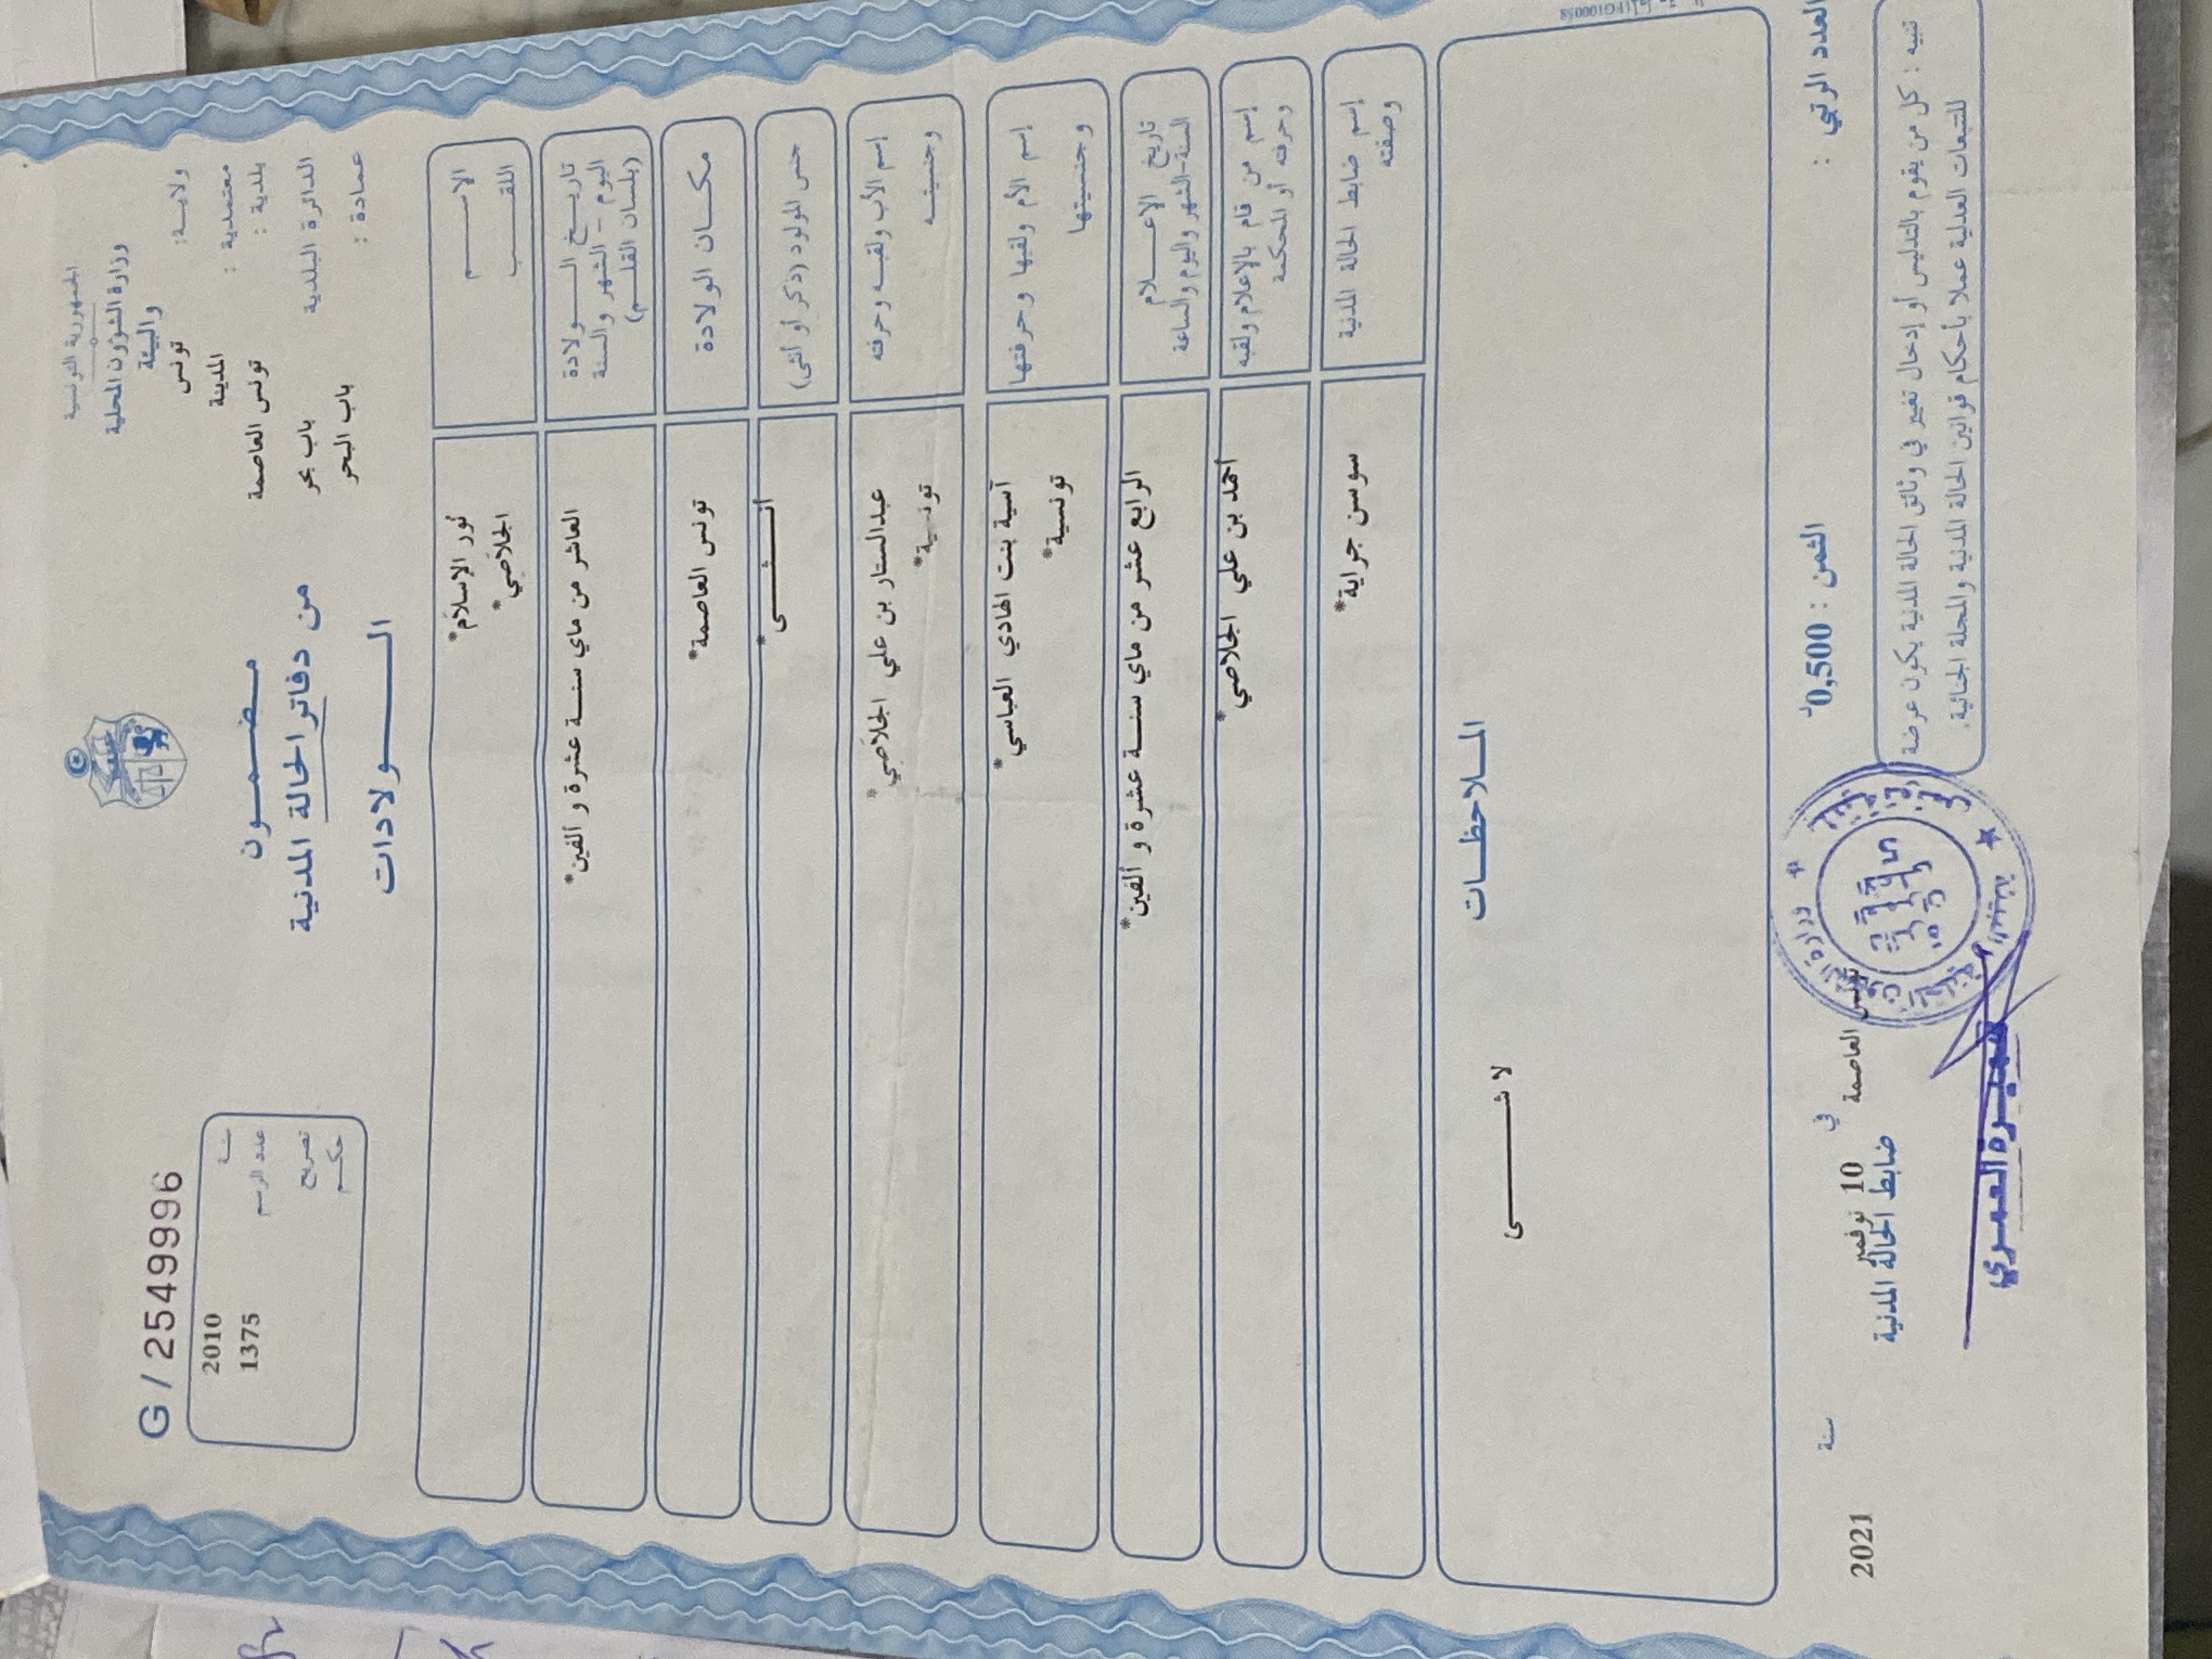 الجمهورية التونسية
وزارة الشؤون المحلية
والبيئة
ولاية: تونس
معتمدية : المدينة
بلدية : تونس العاصمة
الدائرة البلدية باب بحر
عمادة : باب البحر
G / 2549996
سنة 2010
عدد الرسم 1375
تصريح
حكم
مضمون
من دفاتر الحالة المدنية
الولادات
الاسم نُور الإسلاَم*
اللقب الجلاَصي*
تاريخ الولادة
اليوم – الشهر والسنة
(بلسان القلم)
العاشر من ماي سنة عشرة و ألفين*
مكان الولادة تونس العاصمة*
جنس المولود (ذكر أو أنثى) أنثى*
إسم الأب ولقبه وحرفته عبدالستار بن علي الجلاَصي*
وجنسيته تونسية*
إسم الأم ولقبها وحرفتها آسية بنت الهادي العباسي*
وجنسيتها تونسية*
تاريخ الإعلام
السنة-الشهر واليوم والساعة
الرابع عشر من ماي سنة عشرة و ألفين*
إسم من قام بالإعلام ولقبه
وحرفته أو المحكمة
أحمد بن علي الجلاصي*
إسم ضابط الحالة المدنية
وصفته
سوسن جراية*
الملاحظات
لا شى
العدد الرتبي :
الثمن : 0,500د
تونس العاصمة في 10 نوفمبر سنة 2021
ضابط الحالة المدنية
تنبيه : كل من يقوم بالتدليس أو إدخال تغيير في وثائق الحالة المدنية يكون عرضة
للتتبعات العدلية عملا بأحكام قوانين الحالة المدنية والمجلة الجنائية.